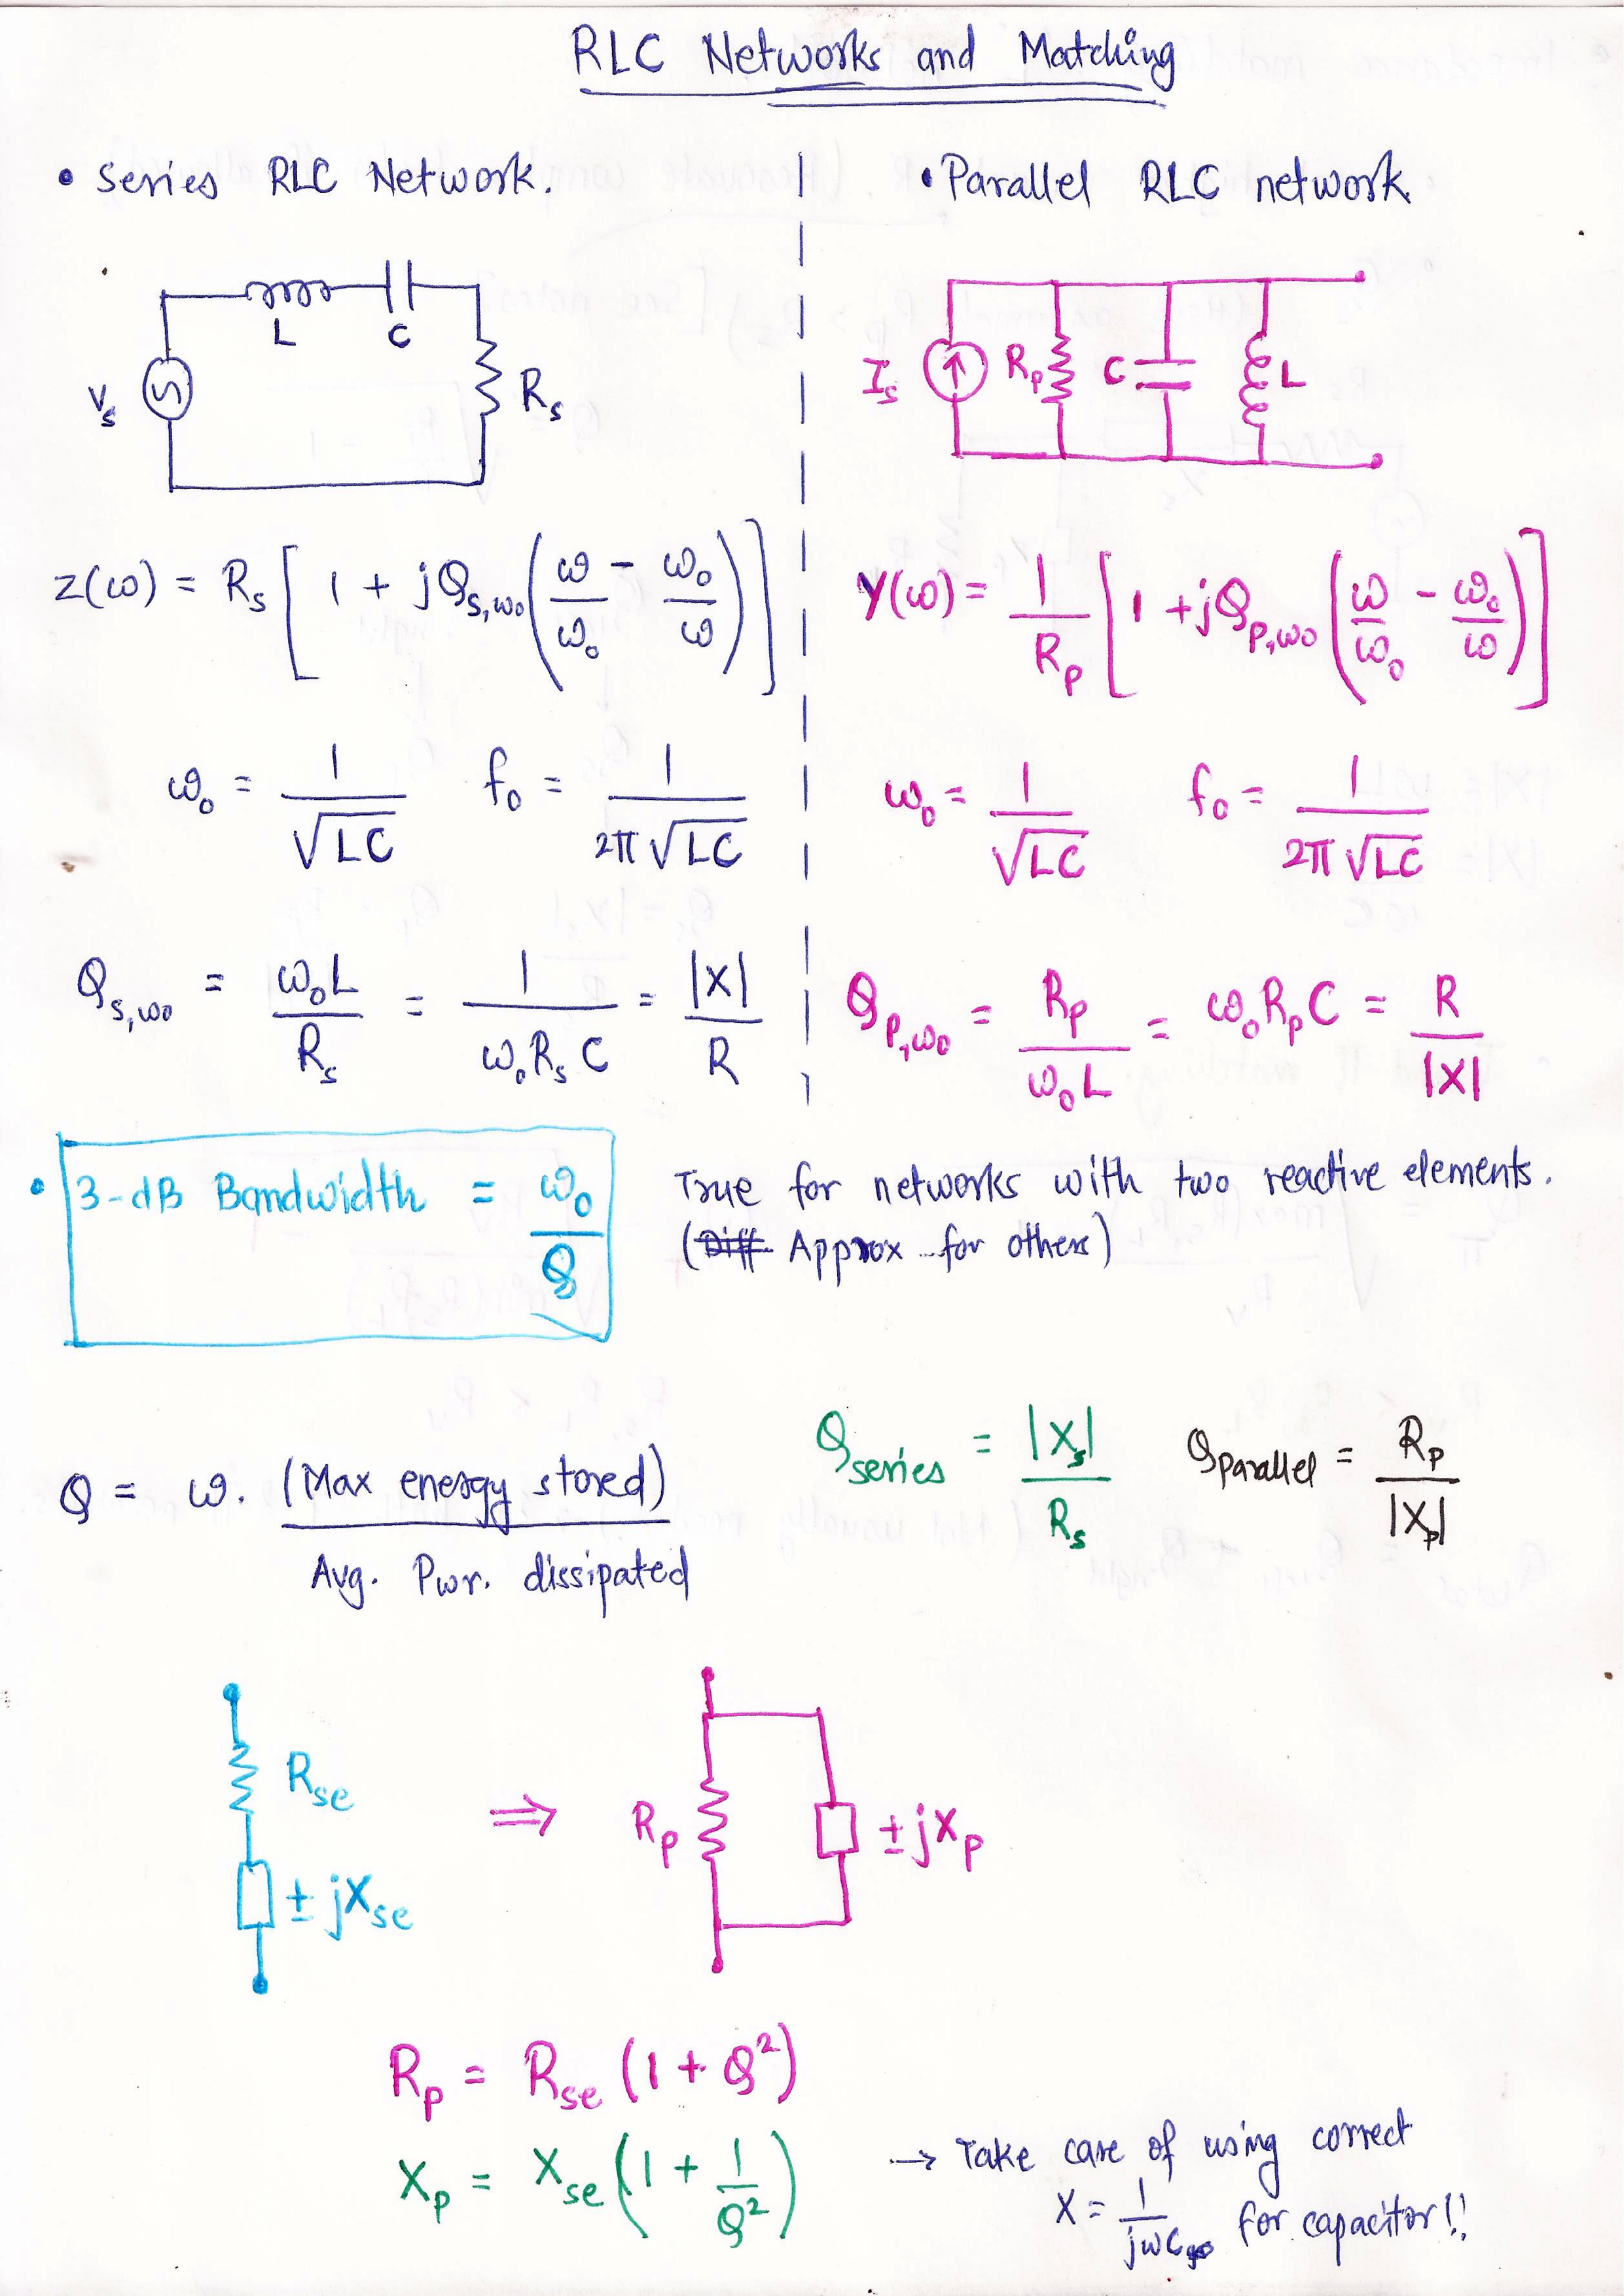 RLC Networks and Matching
• Series RLC Network.
L C
V_s R_s
z(ω) = R_s [ 1 + jQ_{s,ω0} ( ω/ω_0 - ω_0/ω ) ]
ω_0 = 1/√LC f_0 = 1/2π√LC
Q_{s,ω0} = ω_0L/R_s = 1/ω_0R_sC = |X|/R
• Parallel RLC network.
I_s R_p C L
Y(ω) = 1/R_p [ 1 + jQ_{p,ω0} ( ω/ω_0 - ω_0/ω ) ]
ω_0 = 1/√LC f_0 = 1/2π√LC
Q_{p,ω0} = R_p/ω_0L = ω_0R_pC = R/|X|
• 3-dB Bandwidth = ω_0/Q
True for networks with two reactive elements.
(Diff Approx for others)
Q = ω. (Max energy stored)/Avg. Pwr. dissipated
Q_series = |X_s|/R_s Q_parallel = R_p/|X_p|
R_se
± jX_se
⇒
R_p ± jX_p
R_p = R_se (1 + Q²)
X_p = X_se (1 + 1/Q²)
→ Take care of using correct
X = 1/jωC for capacitor!!